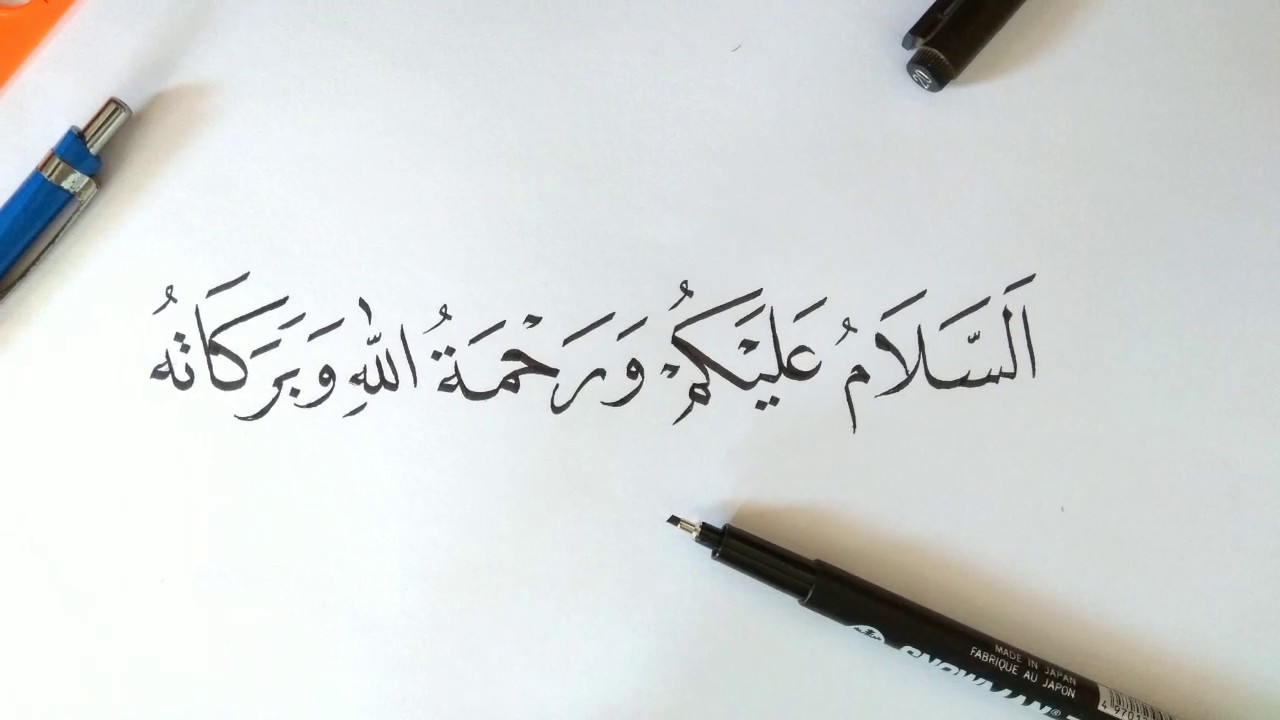 اَلسَّلَامُ عَلَيْكُمْ وَرَحْمَةُ اللّٰهِ وَبَرَكَاتُهُ
MADE IN JAPAN
FABRIQUE AU JAPON
SNOWMAN